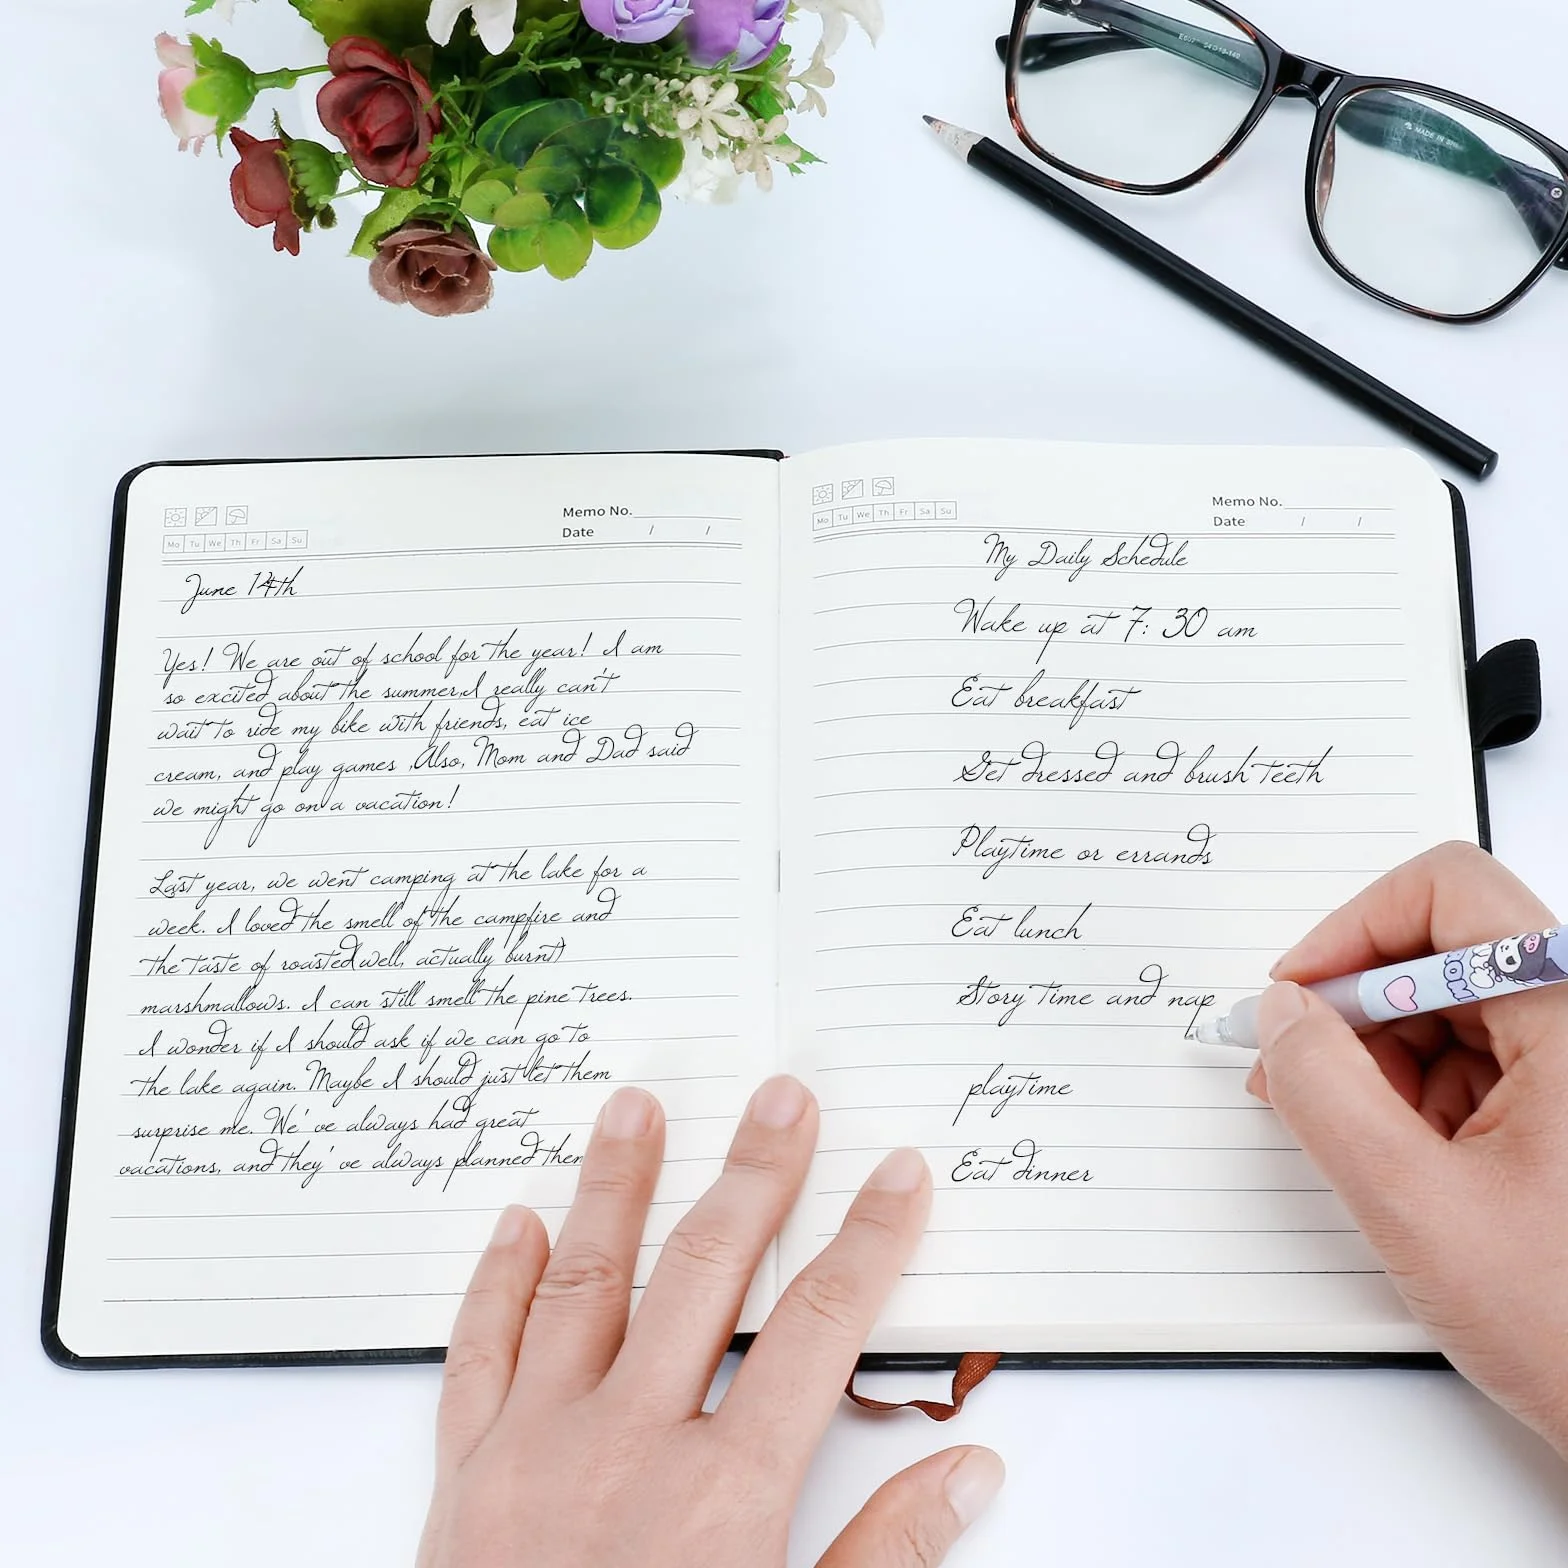 Mo Tu We Th Fr Sa Su
Memo No.
Date / /
June 14th
Yes! We are out of school for the year! I am
so excited about the summer.I really can't
wait to ride my bike with friends, eat ice
cream, and play games ,Also, Mom and Dad said
we might go on a vacation!
Last year, we went camping at the lake for a
week. I loved the smell of the campfire and
the taste of roasted well, actually burnt)
marshmallows. I can still smell the pine trees.
I wonder if I should ask if we can go to
the lake again. Maybe I should just let them
surprise me. We' ve always had great
vacations, and they' ve always planned them
Mo Tu We Th Fr Sa Su
Memo No.
Date / /
My Daily Schedule
Wake up at 7: 30 am
Eat breakfast
Get dressed and brush teeth
Playtime or errands
Eat lunch
Story time and nap
playtime
Eat dinner